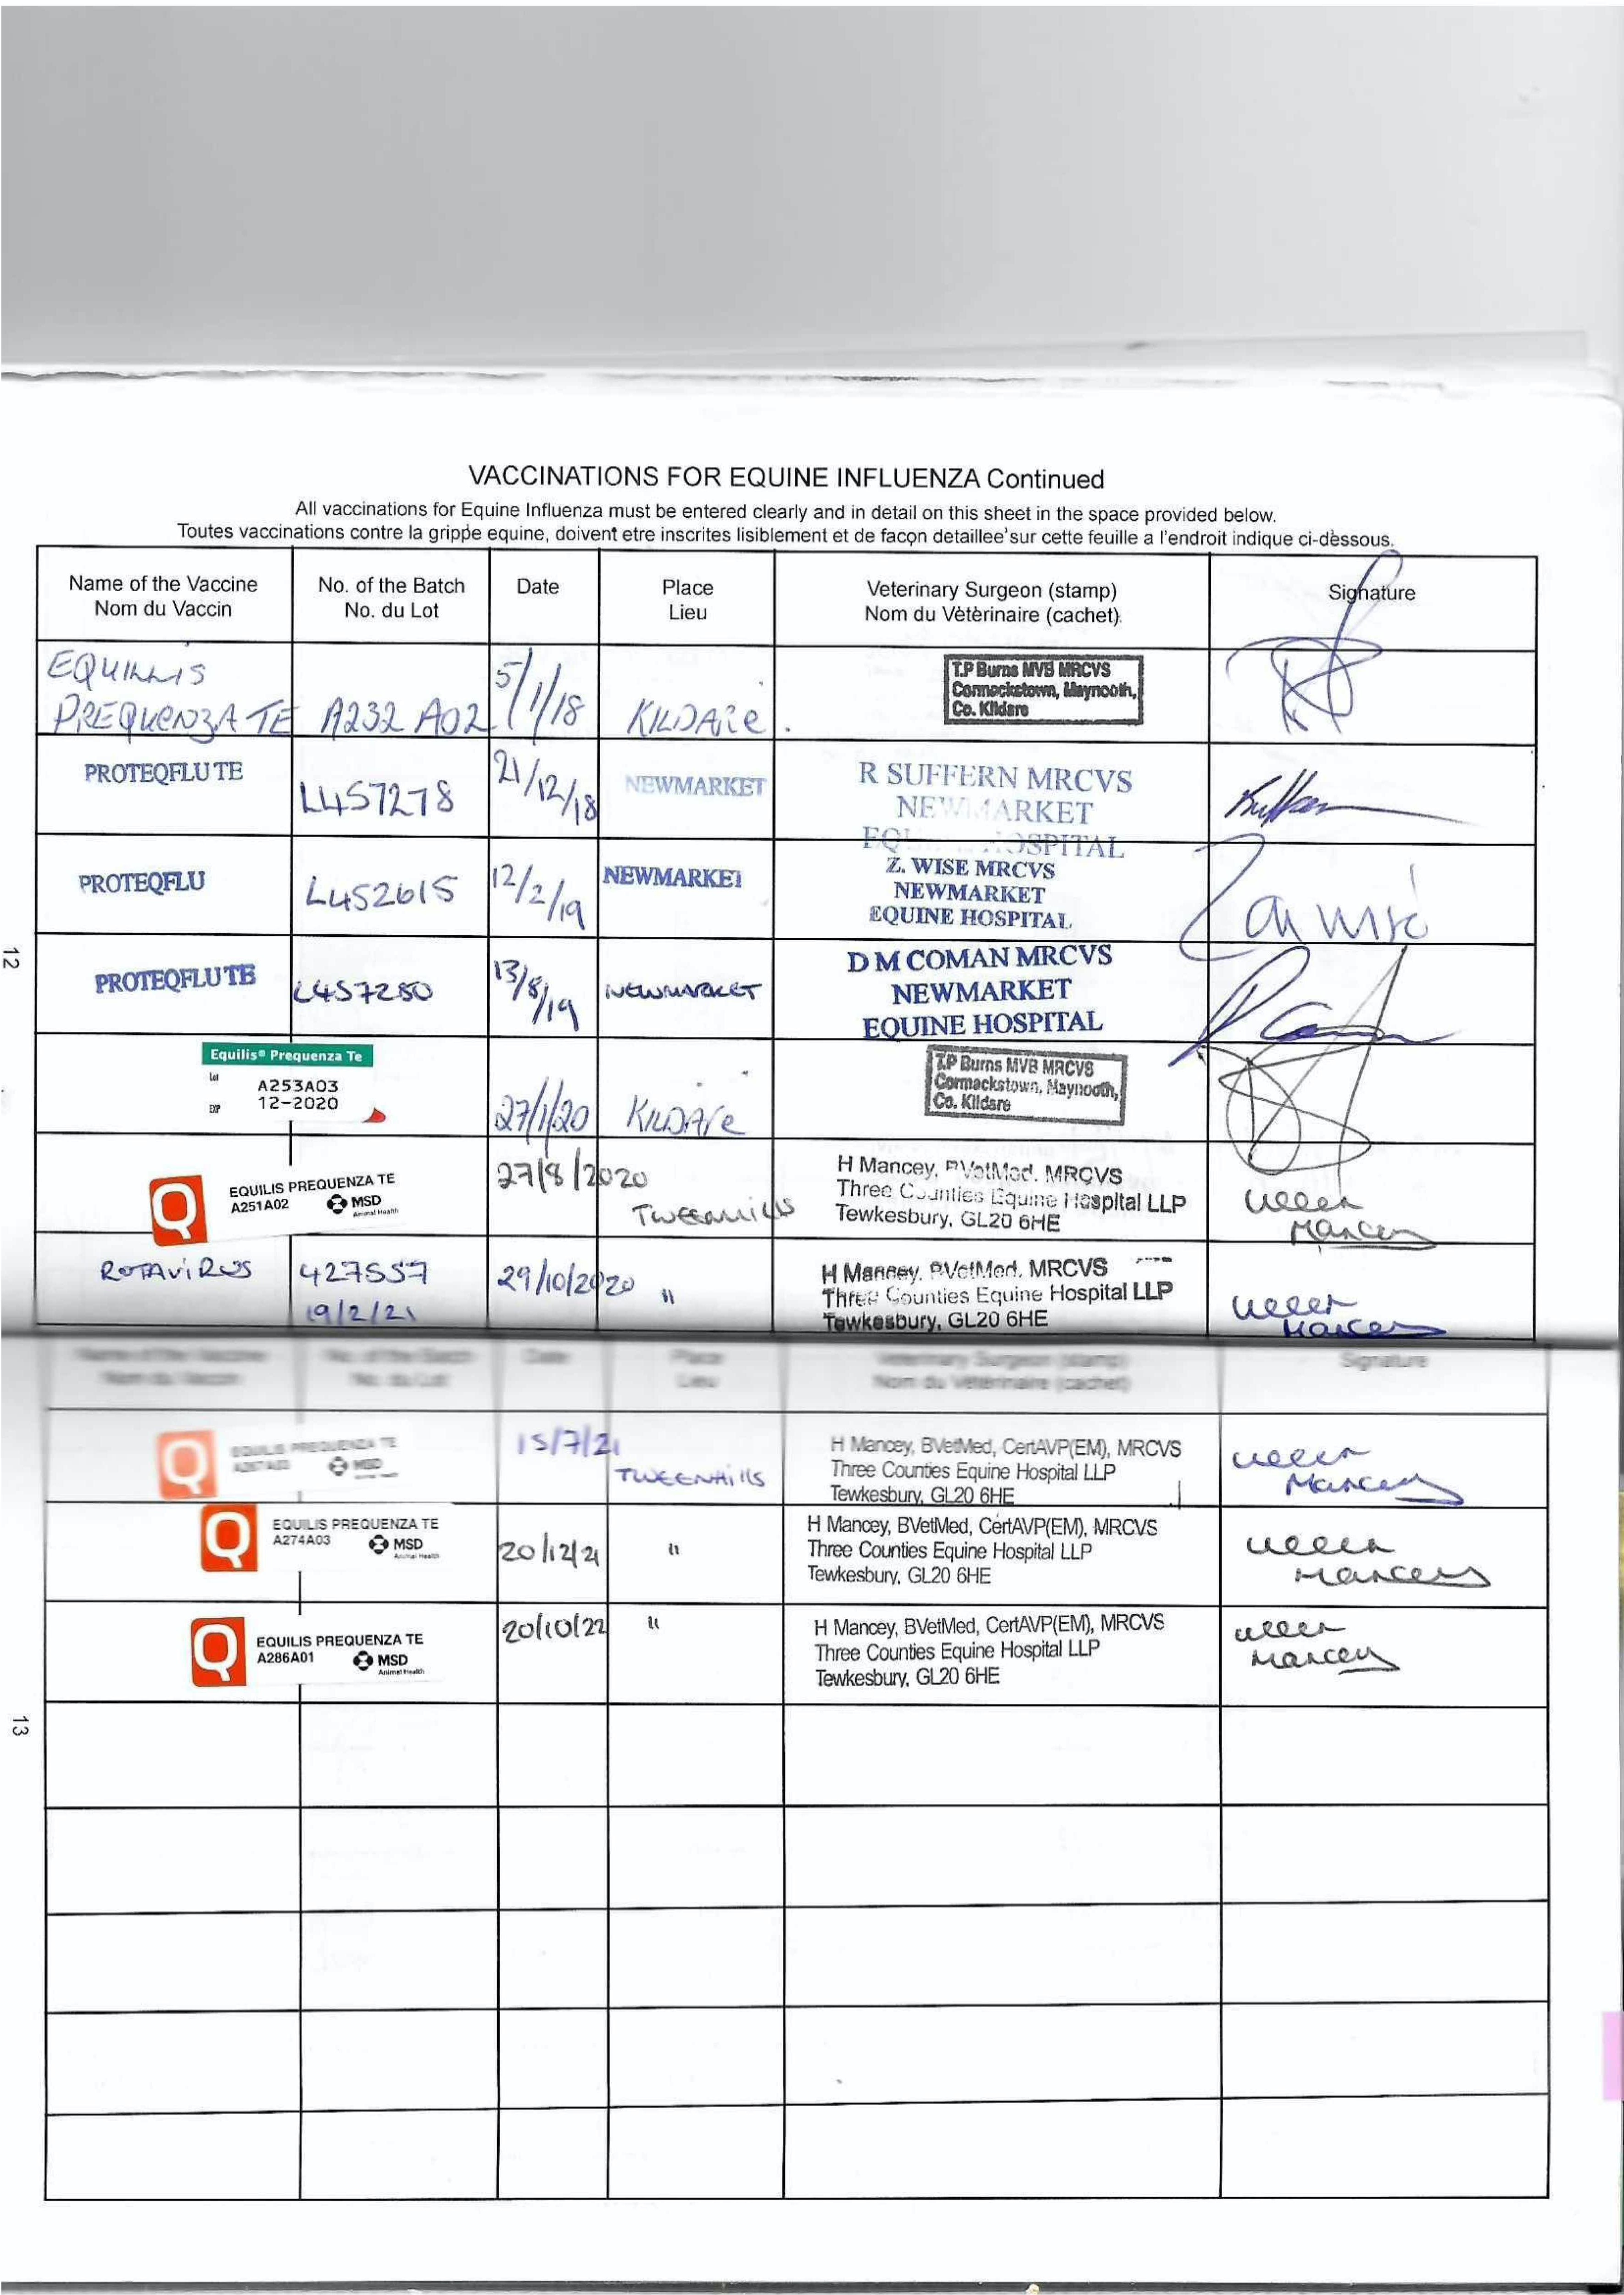 VACCINATIONS FOR EQUINE INFLUENZA Continued
All vaccinations for Equine Influenza must be entered clearly and in detail on this sheet in the space provided below.
Toutes vaccinations contre la grippe equine, doivent etre inscrites lisiblement et de façon detaillee' sur cette feuille a l'endroit indique ci-dèssous.
Name of the Vaccine No. of the Batch Date Place Veterinary Surgeon (stamp) Signature
Nom du Vaccin No. du Lot Lieu Nom du Vètèrinaire (cachet)
EQUILLIS
PREQUENZA TE A232 A02 5/1/18 KILDARE.
T.P Burns MVB MRCVS
Cormackstown, Maynooth,
Co. Kildare
PROTEQFLU TE L457278 21/12/18 NEWMARKET
R SUFFERN MRCVS
NEWMARKET
HOSPITAL
PROTEQFLU L452615 12/2/19 NEWMARKET
Z. WISE MRCVS
NEWMARKET
EQUINE HOSPITAL
12
PROTEQFLU TE L457280 13/8/19 NEWMARKET
D M COMAN MRCVS
NEWMARKET
EQUINE HOSPITAL
Equilis® Prequenza Te
Lot A253A03
EXP 12-2020
27/1/20 KILDARE
T.P Burns MVB MRCVS
Cormackstown, Maynooth,
Co. Kildare
Q EQUILIS PREQUENZA TE
A251A02 MSD
Animal Health
27/8/2020 TWEENHILLS
H Mancey, BVetMed, MRCVS
Three Counties Equine Hospital LLP
Tewkesbury, GL20 6HE
Mancey
ROTAVIRUS 427557 29/10/2020 "
19/2/21
H Mancey, BVetMed, MRCVS
Three Counties Equine Hospital LLP
Tewkesbury, GL20 6HE
Mancey
Name of the Vaccine No. of the Batch Date Place Veterinary Surgeon (stamp) Signature
Nom du Vaccin No. du Lot Lieu Nom du Vètèrinaire (cachet)
Q EQUILIS PREQUENZA TE
MSD
15/7/21 TWEENHILLS
H Mancey, BVetMed, CertAVP(EM), MRCVS
Three Counties Equine Hospital LLP
Tewkesbury, GL20 6HE
Mancey
Q EQUILIS PREQUENZA TE
A274A03 MSD
Animal Health
20/12/21 "
H Mancey, BVetMed, CertAVP(EM), MRCVS
Three Counties Equine Hospital LLP
Tewkesbury, GL20 6HE
Mancey
Q EQUILIS PREQUENZA TE
A286A01 MSD
Animal Health
20/10/22 "
H Mancey, BVetMed, CertAVP(EM), MRCVS
Three Counties Equine Hospital LLP
Tewkesbury, GL20 6HE
Mancey
13